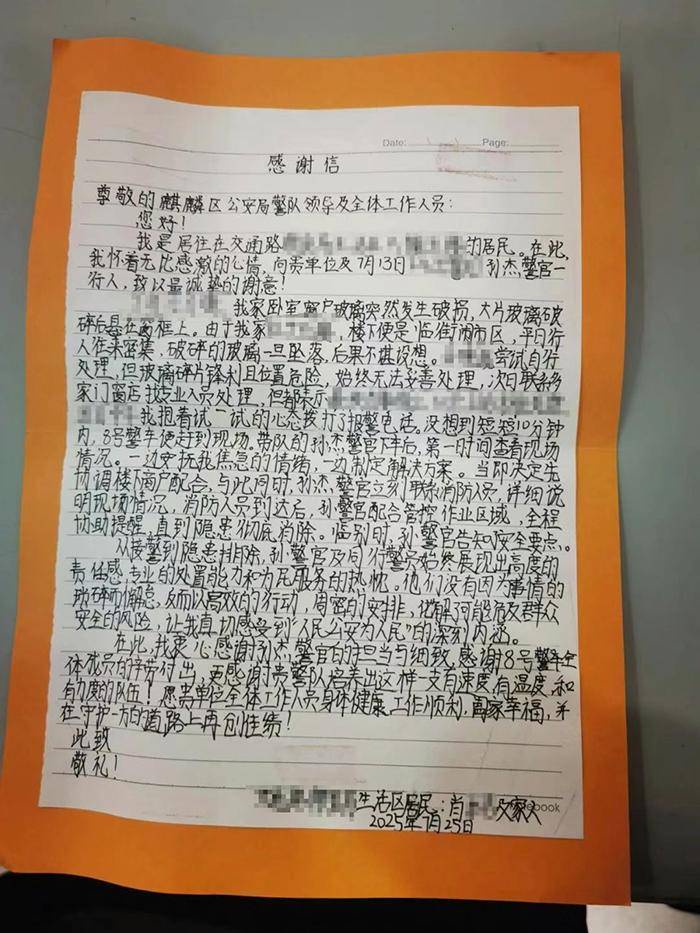 Date:
Page:
感谢信
尊敬的麒麟区公安局警队领导及全体工作人员:
您好!
我是居住在交通路的居民。在此,
我怀着无比感激的心情,向贵单位及7月13日孙杰警官一
行人,致以最诚挚的谢意!
我家卧室窗户玻璃突然发生破损,大片玻璃破
碎后悬在窗框上。由于我家,楼下便是临街闹市区,平日行
人往来密集,破碎的玻璃一旦坠落,后果不堪设想。尝试自行
处理,但玻璃碎片锋利且位置危险,始终无法妥善处理,次日联系多
家门窗店找专业人员处理,但都表示
我抱着试一试的心态拨打了报警电话。没想到短短10分钟
内,8号警车便赶到现场,带队的孙杰警官下车后,第一时间查看现场
情况。一边安抚我焦急的情绪,一边制定解决方案。当即决定先
协调楼下商户配合,与此同时,孙杰警官立刻联系消防人员,详细说
明现场情况,消防人员到达后,孙警官配合管控作业区域,全程
协助提醒,直到隐患彻底消除。临别时,孙警官告知安全要点。
从接警到隐患排除,孙警官及同行警员始终展现出高度的
责任感、专业的处置能力和为民服务的热忱。他们没有因为事情的
琐碎而懈怠,反而以高效的行动,周密的安排,化解可能危及群众
安全的风险,让我真切感受到“人民公安为人民”的深刻内涵。
在此,我衷心感谢孙杰警官的担当与细致,感谢8号警车全
体成员的辛劳付出,更感谢贵警队培养出这样一支有速度,有温度,和
有力度的队伍!愿贵单位全体工作人员身体健康,工作顺利,阖家幸福,并
在守护一方的道路上再创佳绩!
此致
敬礼!
生活区居民:肖及家人
ebook
2025年7月25日